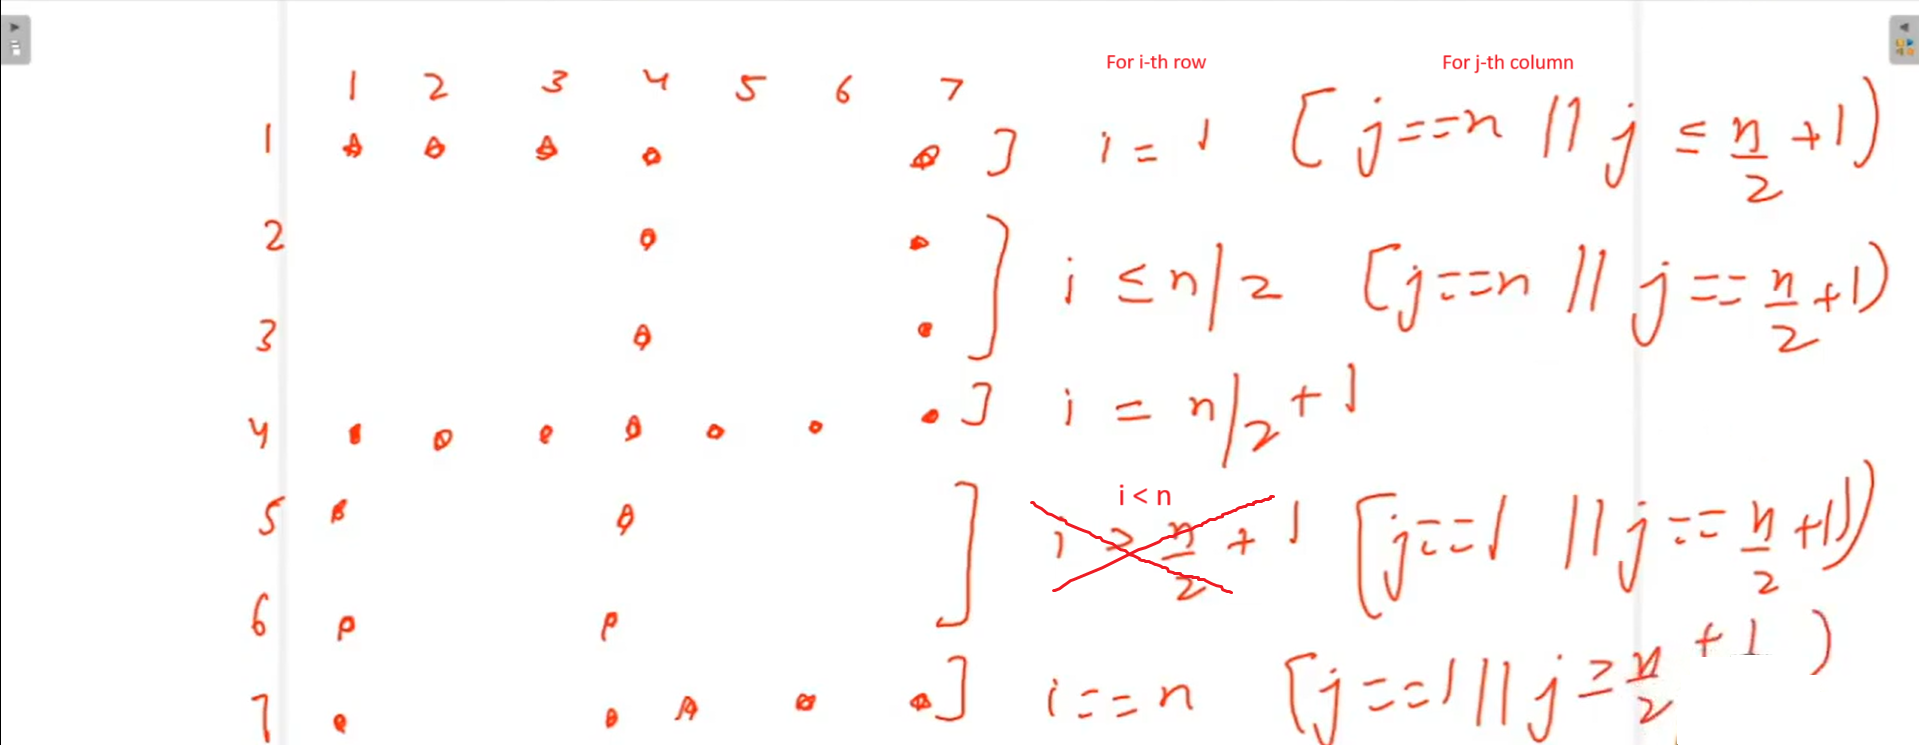 For i-th row For j-th column
1 2 3 4 5 6 7
1 ] i = 1 [ j==n || j ≤ n/2 +1)
2
] i ≤ n/2 [j==n || j == n/2 +1)
3
4 ] i = n/2 + 1
i < n
5 ] i > n/2 + 1 [j==1 || j == n/2 +1)
6
7 ] i == n [j==1 || j ≥ n/2 + 1 )